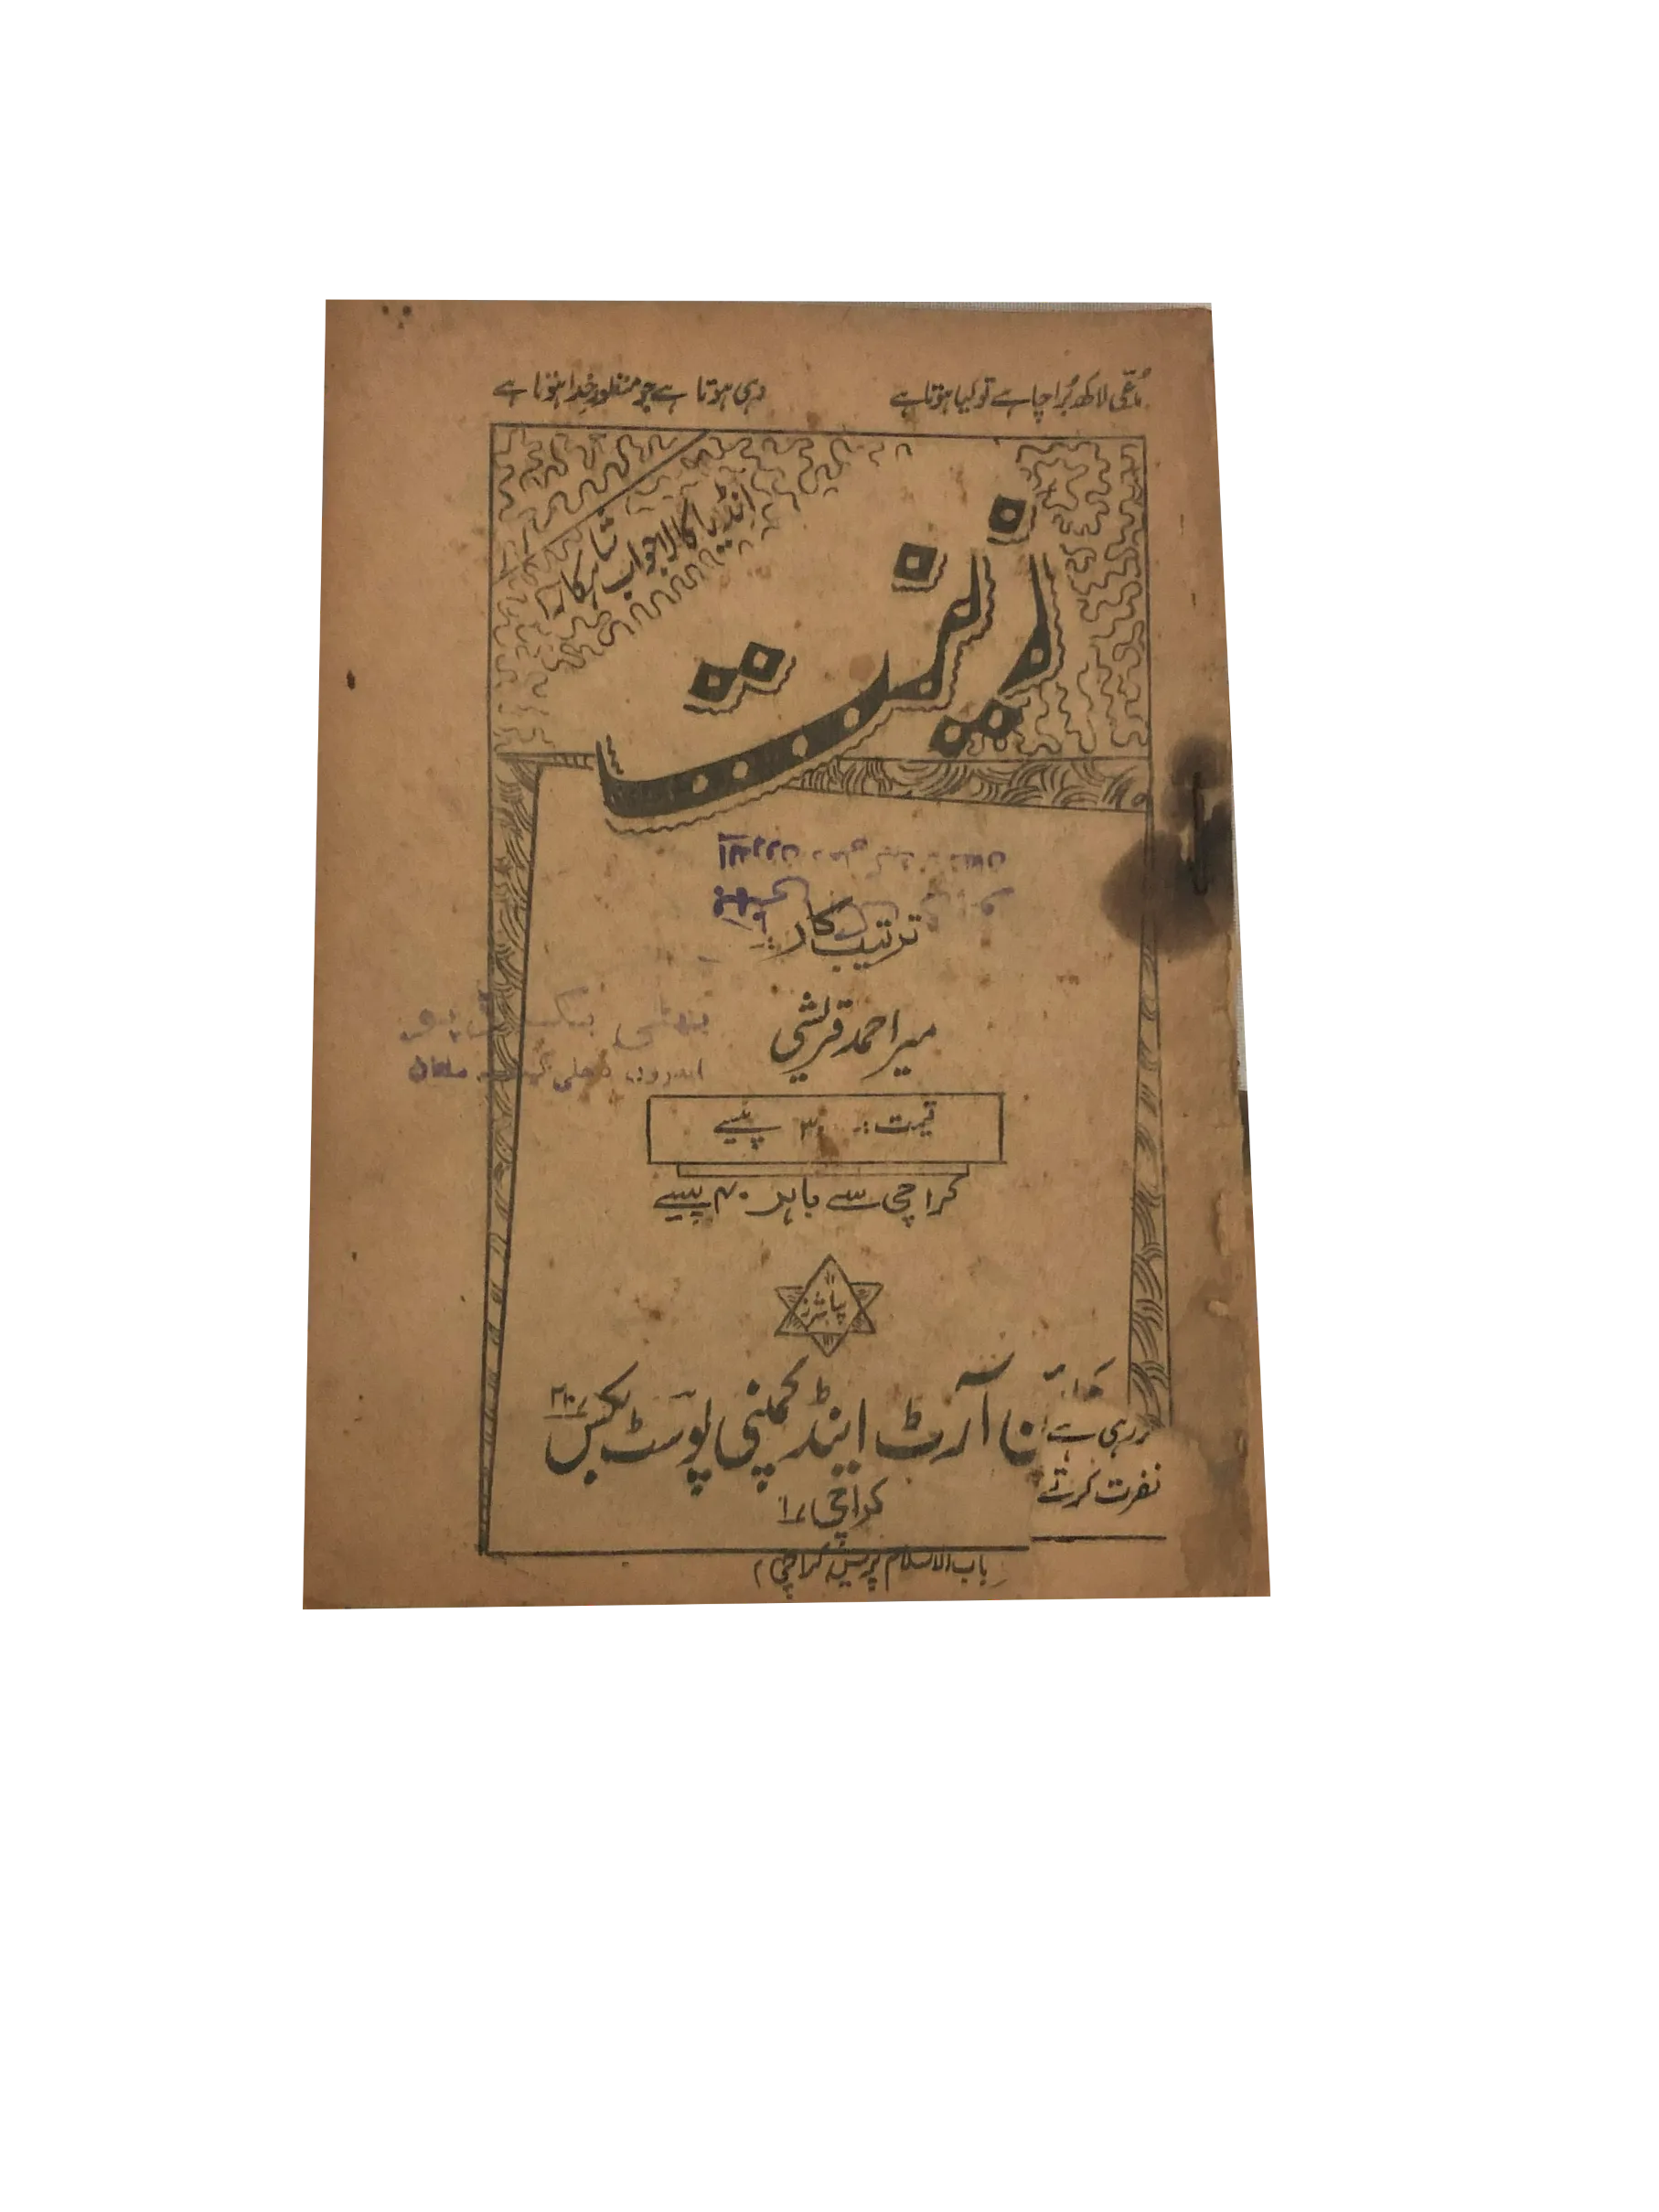 مُدّعی لاکھ بُرا چاہے تو کیا ہوتا ہے وہی ہوتا ہے جو منظورِ خدا ہوتا ہے
انڈیا کا لاجواب شاہکار
زینت
ترتیب کار:۔
میر احمد قریشی
قیمت:۔ ۳۰ پیسے
کراچی سے باہر ۴۰ پیسے
پبلشرز
نا آرٹ اینڈ کمپنی پوسٹ بکس
کراچی ۱
رہی ہے
نفرت کرتے
باب الاسلام پریس کراچی
بھٹی بک ڈپو
اندرون دہلی گیٹ ملتان